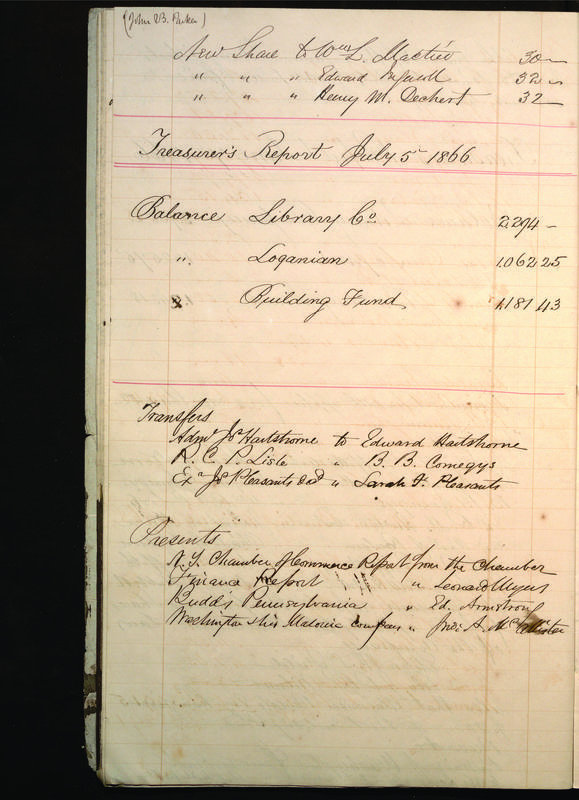 (John B. Parker)
New Share to Wm L. Mactier 30—
" " " Edward 32—
" " " Henry M. Dechert 32—
Treasurer's Report July 5th 1866
Balance Library Co 2,294 —
" Loganian 1,062 25
" Building Fund 1,181 43
Transfers
Admr Jos Haitshorne to Edward Haitshorne
R. C. P. Lisle " B. B. Comegys
Exr Js Pleasants decd " Sarah F. Pleasants
Presents
N. Y. Chamber of Commerce Report from the Chamber
Finance Report " Leonard Myers
Budd's Pennsylvania " Ed. Armstrong
Washington Masonic " Jno A. McAllister